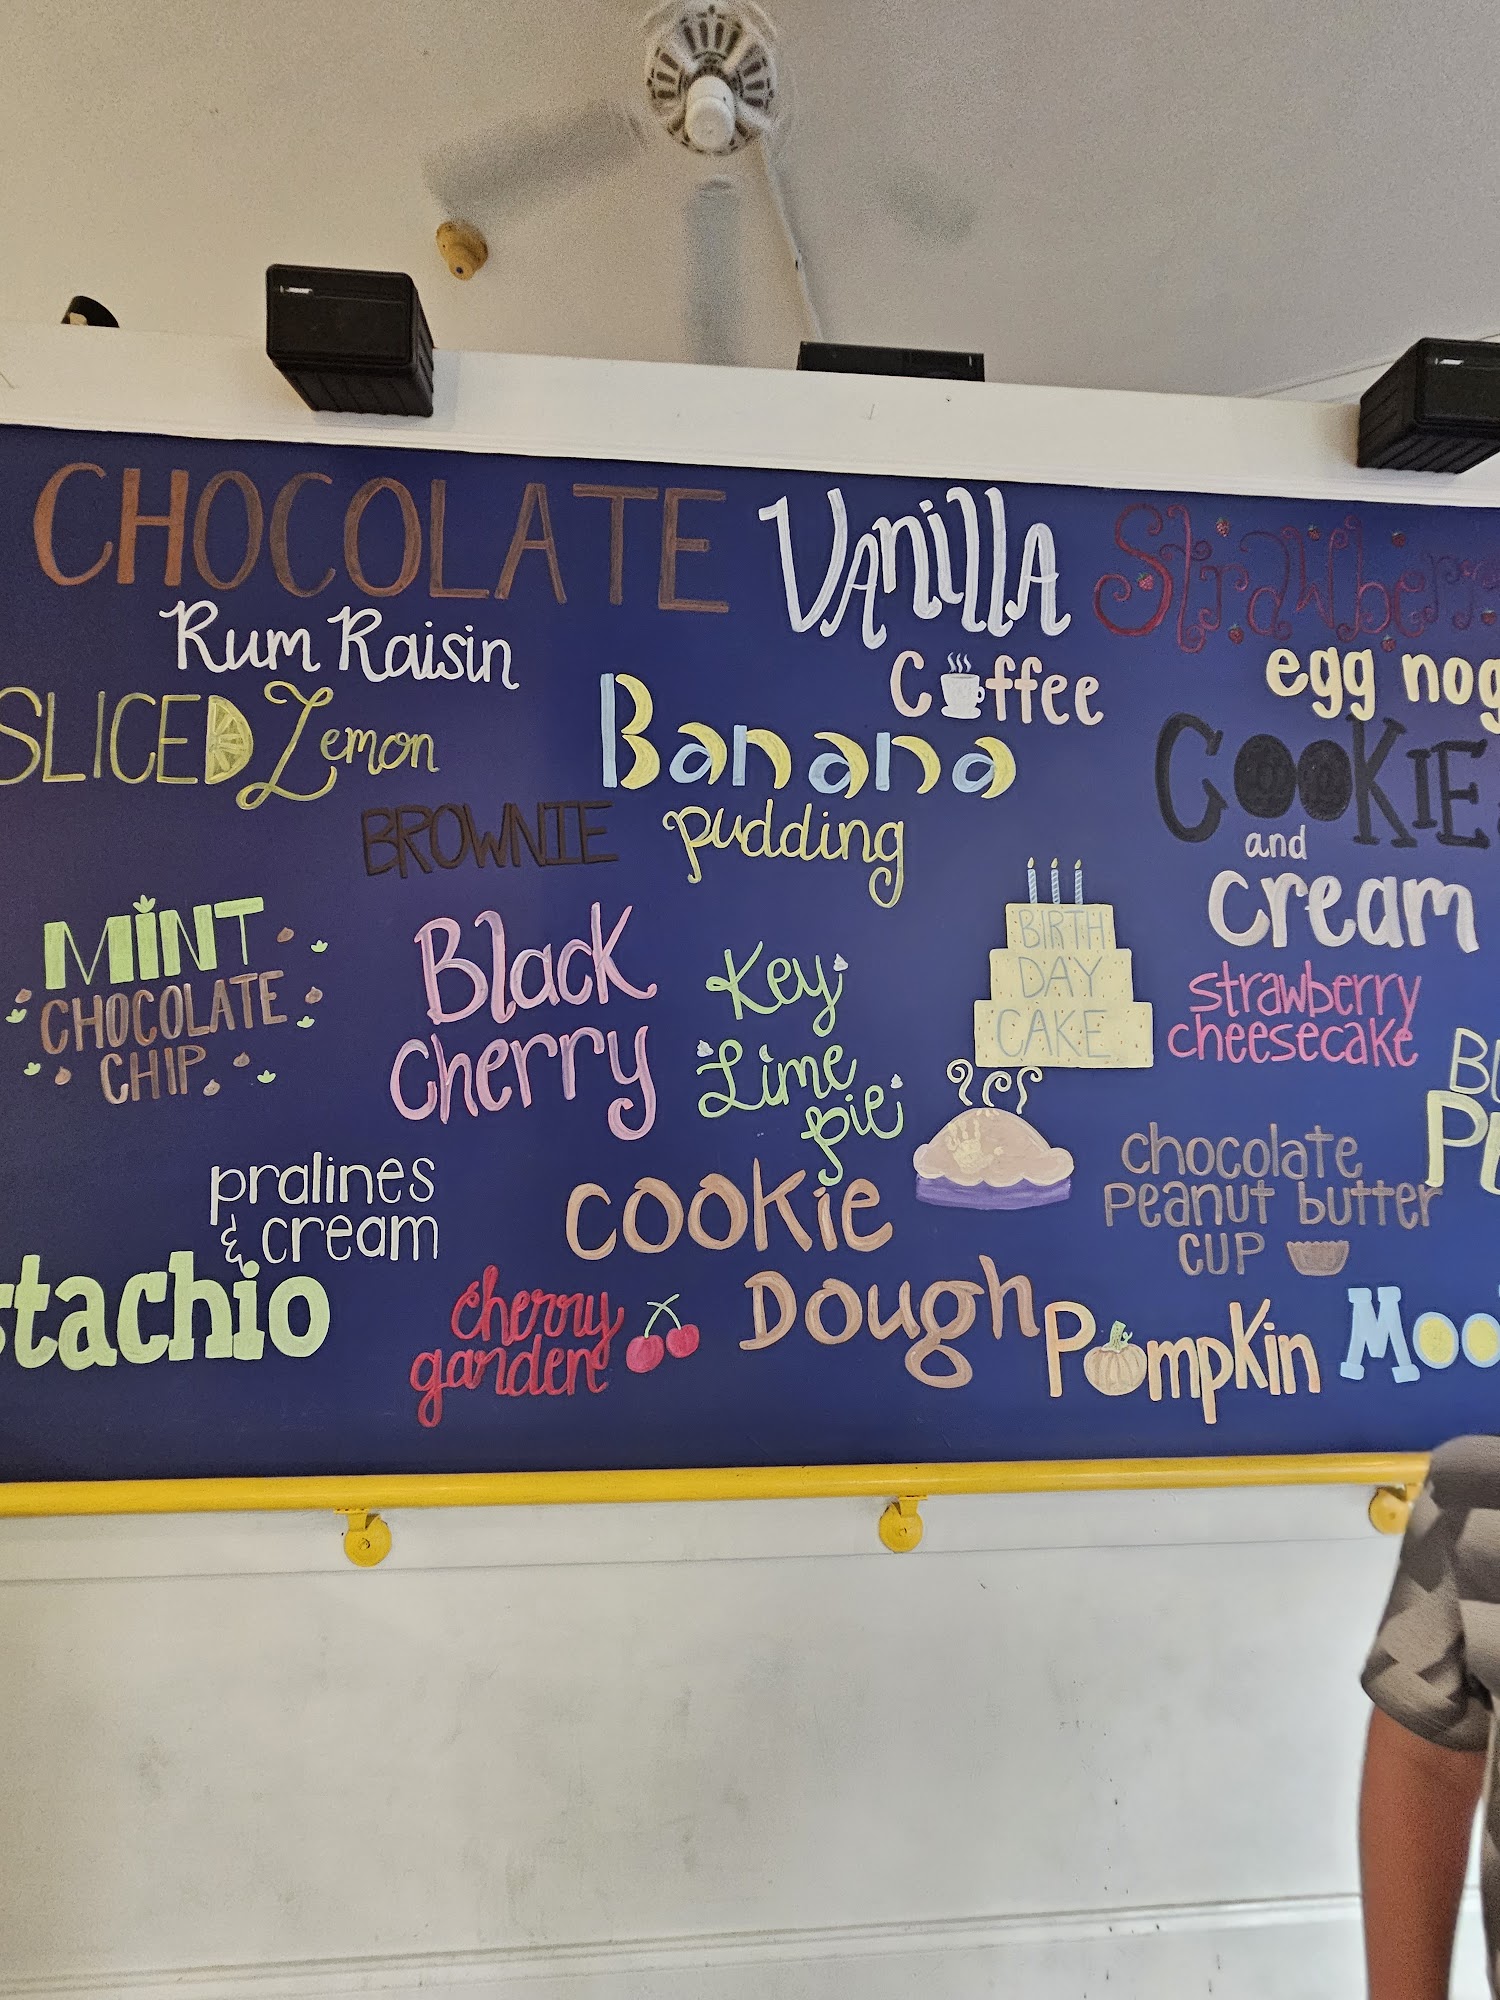 CHOCOLATE Vanilla Strawberr
Rum Raisin
Coffee
egg nog
SLICED Lemon
Banana
pudding
COOKIE
and
cream
BROWNIE
MINT
CHOCOLATE
CHIP
Black
Cherry
Key
Lime
pie
BIRTH
DAY
CAKE
strawberry
cheesecake
pralines
& cream
cookie
Dough
chocolate
Peanut butter
cup
stachio
cherry
garden
Pumpkin
Moo